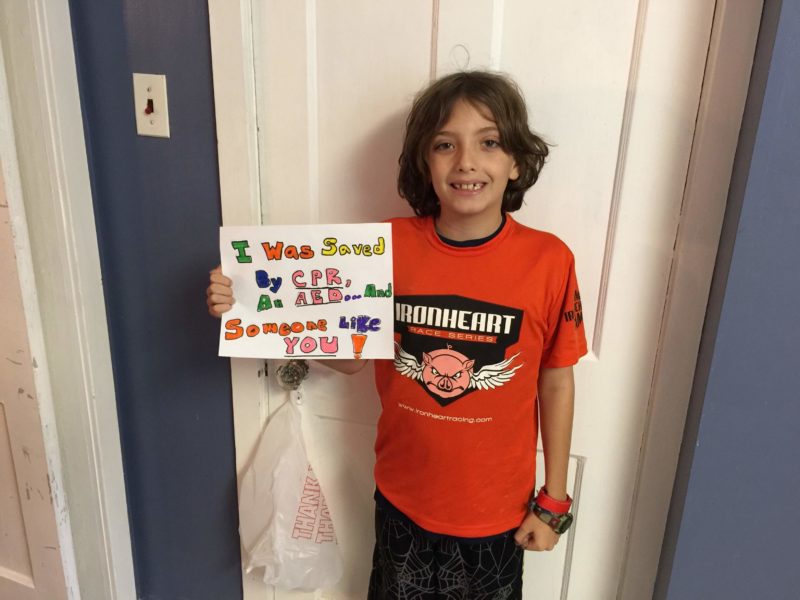 I Was Saved
By CPR,
An AED...And
Someone Like
YOU!
IRONHEART
RACE SERIES
www.ironheartracing.com
THANK
THANK